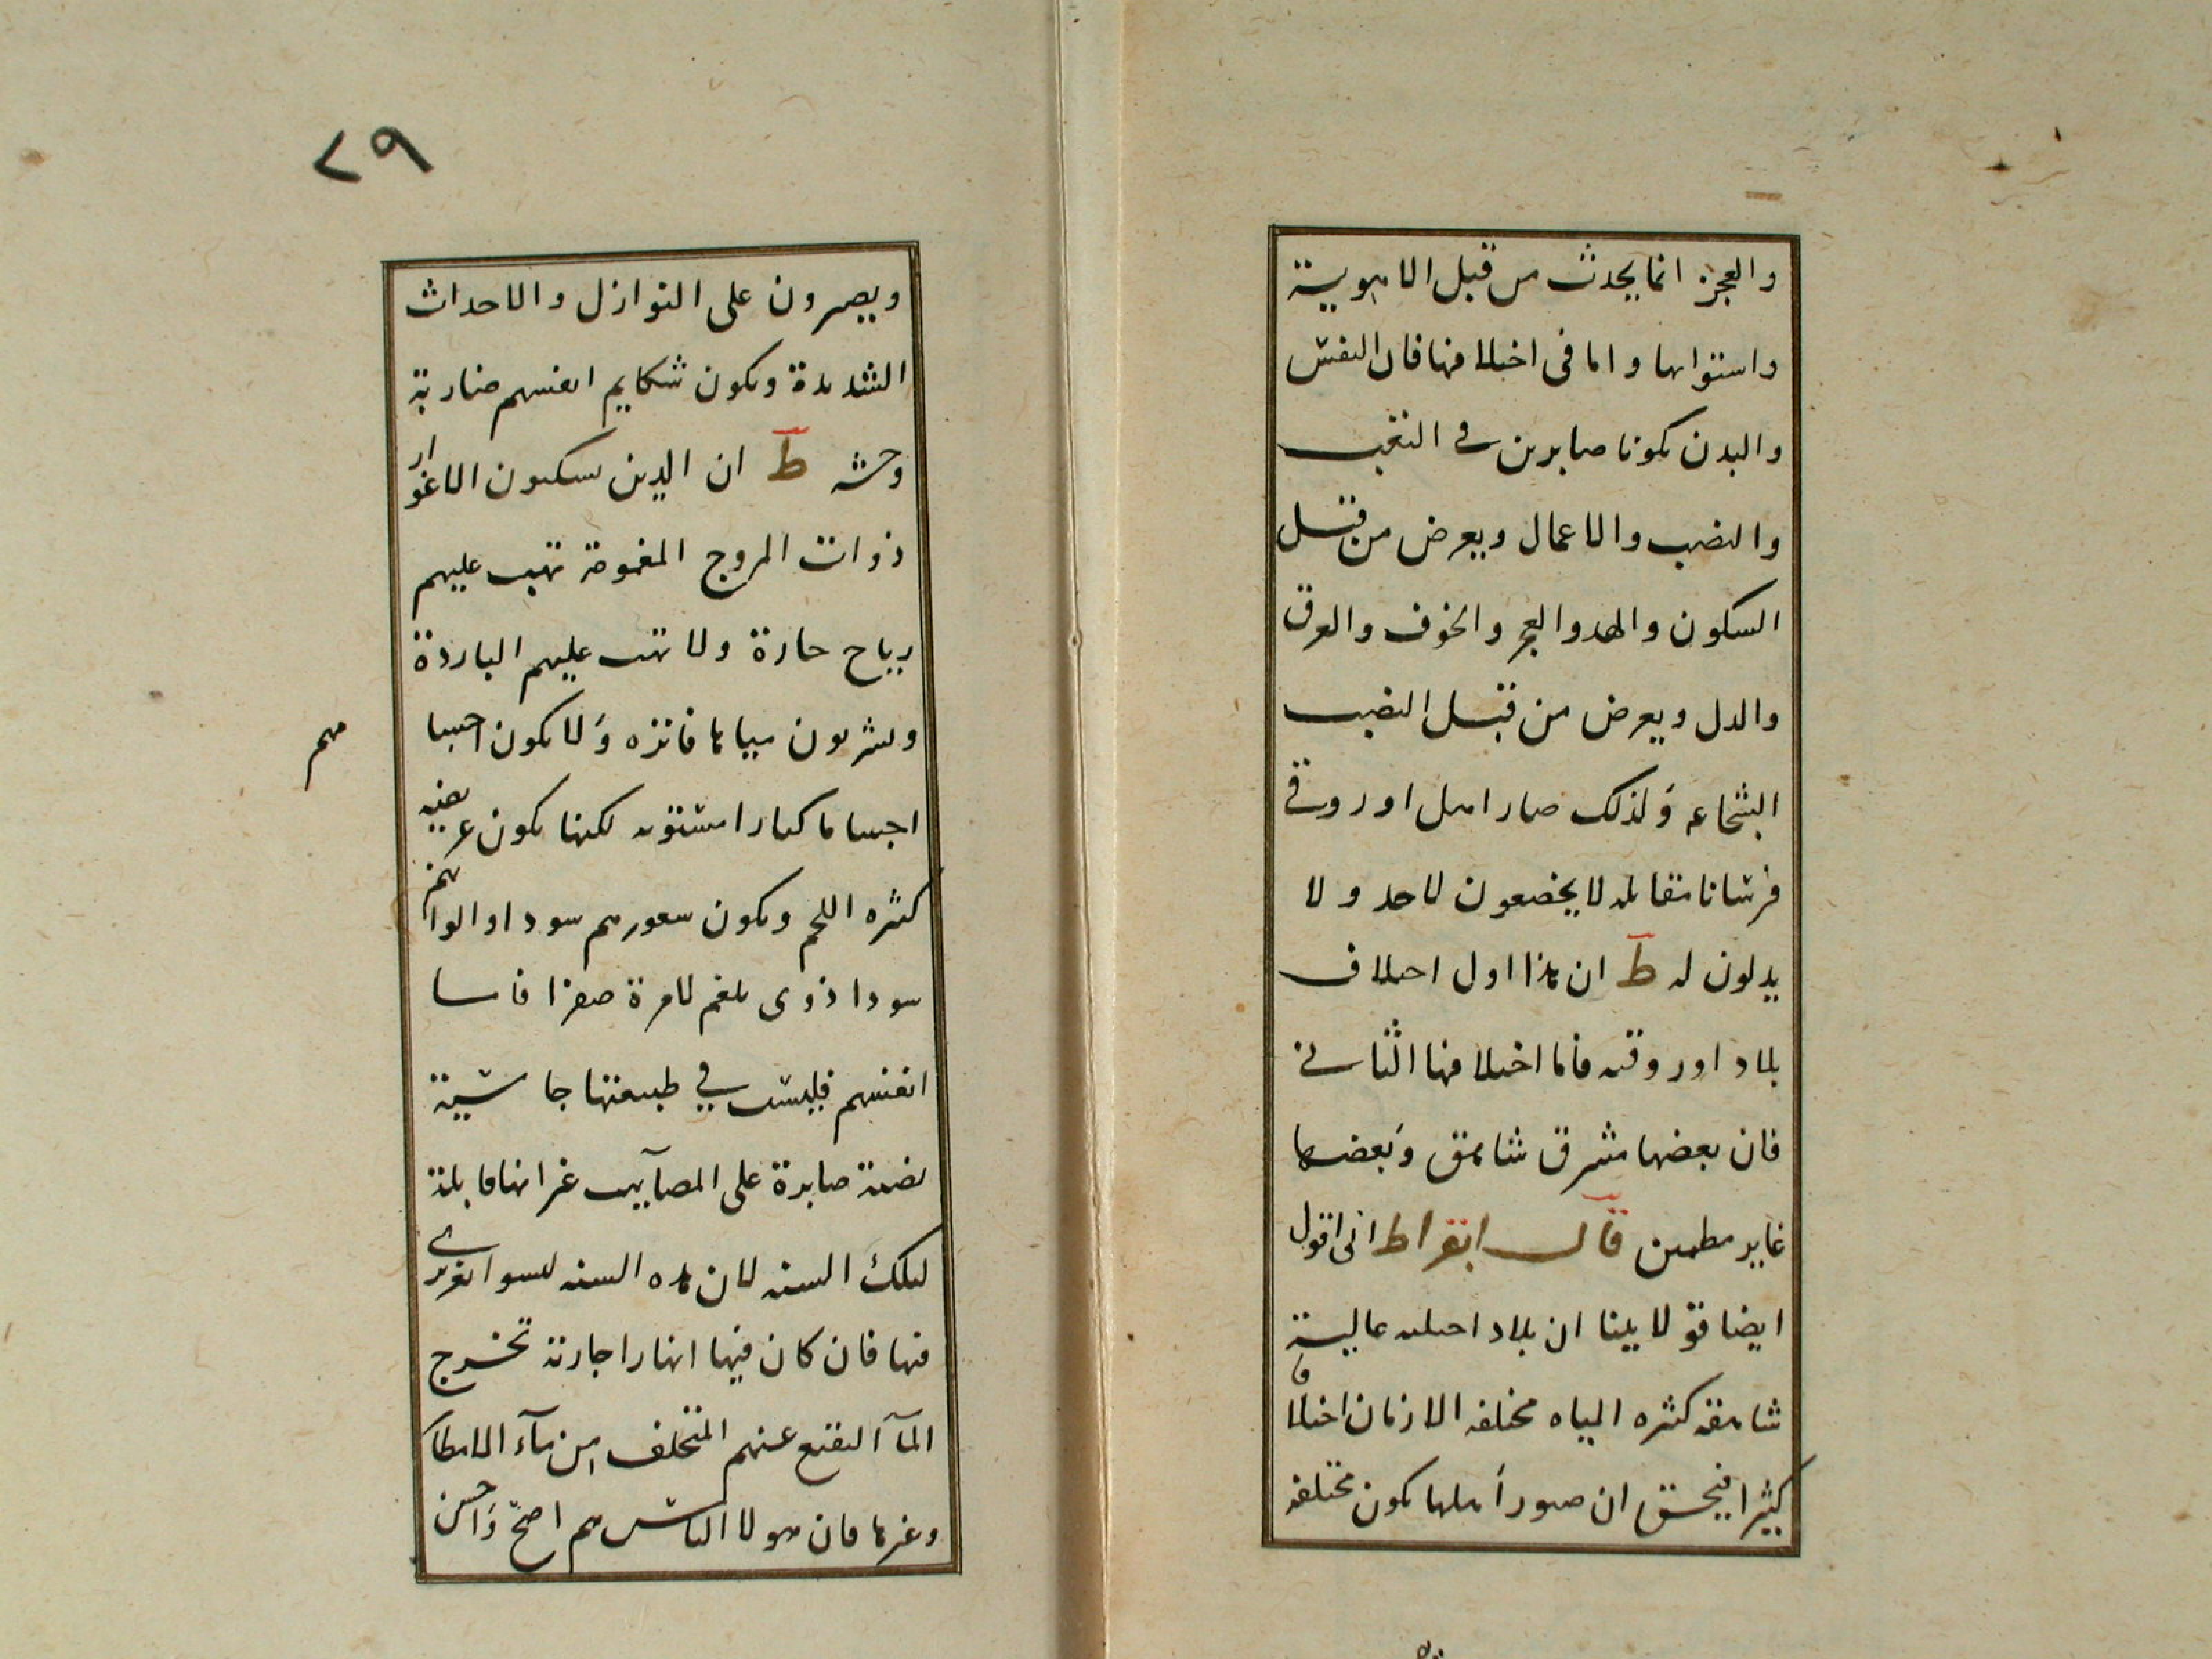 والعجز انما يحدث من قبل الاهوية
واستوابها واما فى اختلافها فان النفس
والبدن يكونا صابرين فى التعب
والنصب والاعمال ويعرض من قبل
السكون والهدو العجز والخوف والعرق
والدل ويعرض من قبل النصب
الشجاعه ولذلك صار اهل اوروقى
فرسانا مقاتله لا يخضعون لاحد ولا
يدلون له ط ان هذا اول اختلاف
بلاد اوروقيه فاما اختلافها الثانى
فان بعضها مشرق شاهق وبعضها
غاير مطمين قال ابقراط انى اقول
ايضا قولا بينا ان بلاد اهليه عالية
شاهقه كثيره المياه مختلفه الازمان اختلافا
كثيرا فيحق ان صور اهلها تكون مختلفه
٢٩
ويصبرون على النوازل والاحداث
الشديدة وتكون شكايم انفسهم ضاربة
وحشه ط ان الذين يسكنون الاغوار
ذوات المروج المغموقة تهب عليهم
رياح حارة ولا تهب عليهم الباردة
ويشربون مياها فاتره ولا تكون اجسا
مهم
اجساما كبارا مستويه لكنها تكون عريضه
كثيره اللحم وتكون شعورهم سودا والوانهم
سودا ذوى بلغم لا مرة صفرا فاما
انفسهم فليست في طبيعتها جاشية
نصبه صابرة على المصآيب غير انها قابلة
لتلك السنه لان هذه السنه ليسوا بغريزى
فيها فان كان فيها انهارا جارية تخرج
المآ النقيع عنهم المتخلف من مآء الامطا
وغيرها فان هولا الناس هم اصح واحسن